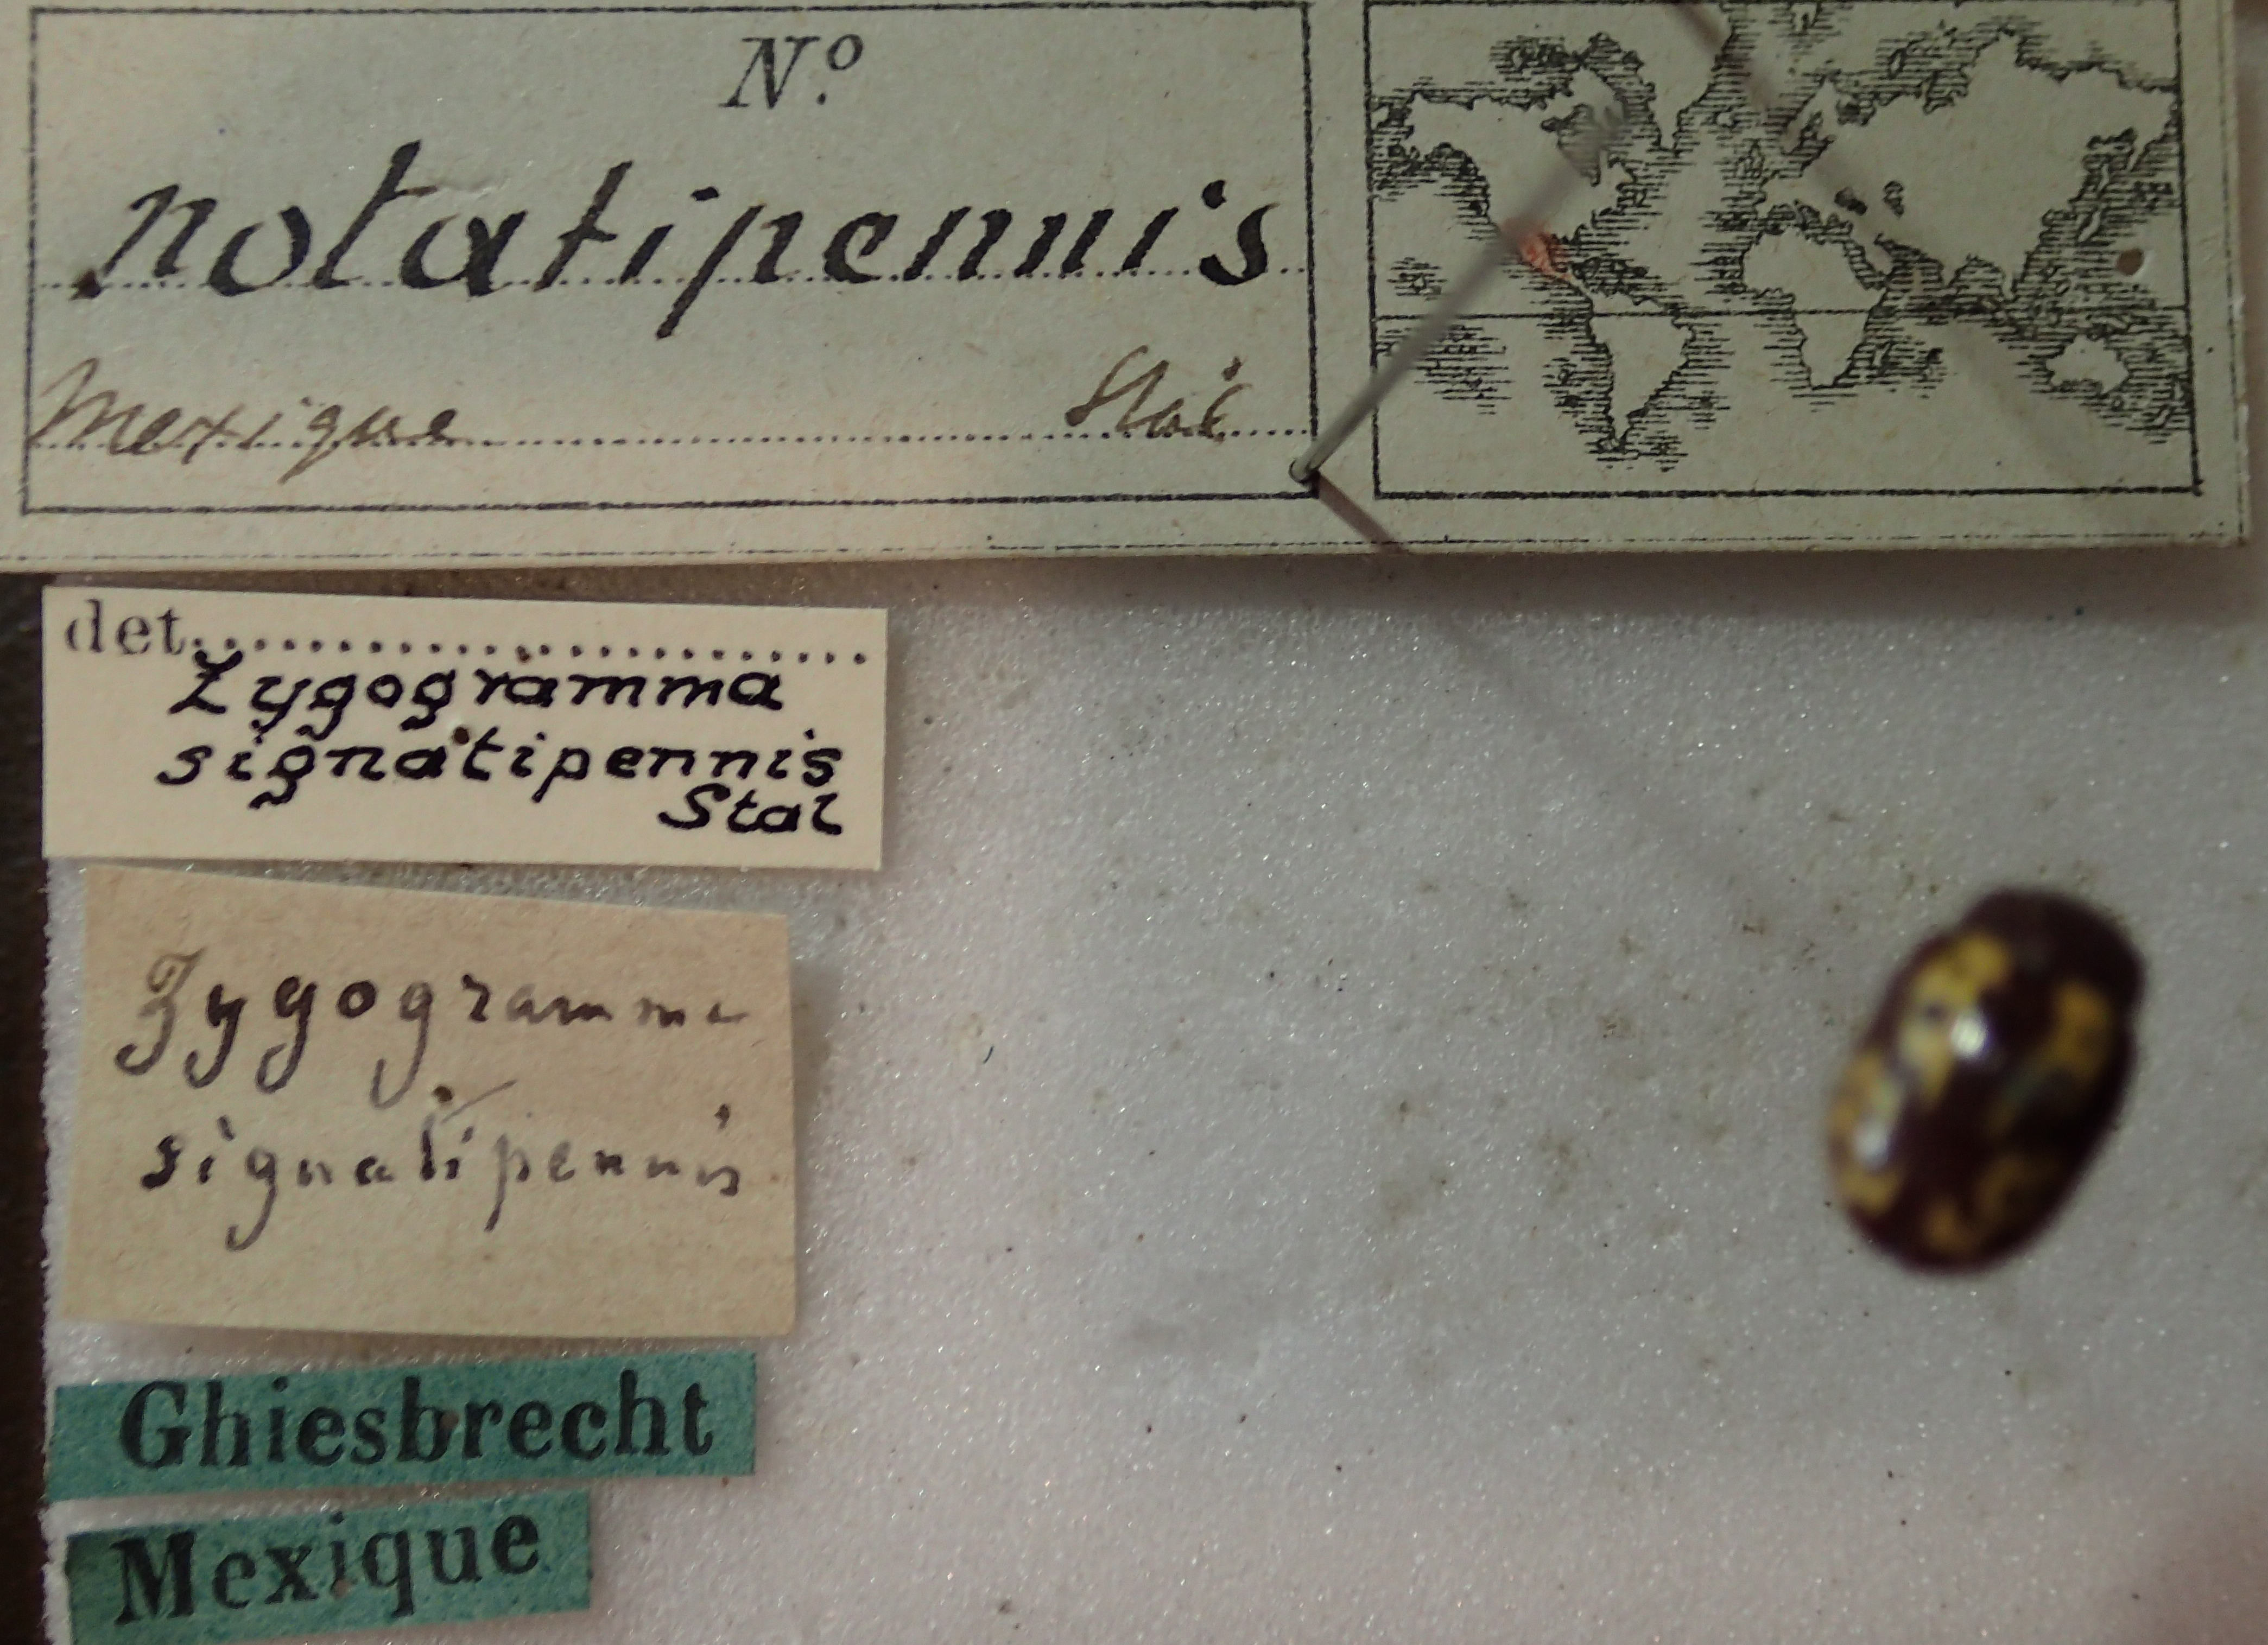 N.º
notatipennis
Mexique Stål
det.
Zygogramma
signatipennis
Stal
Zygogramma
signatipennis
Ghiesbrecht
Mexique